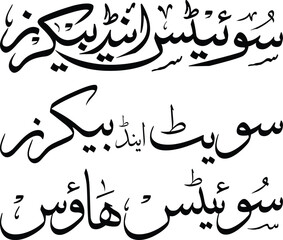 سوئیٹس اینڈ بیکرز
سویٹ اینڈ بیکرز
سوئیٹس ھاؤس